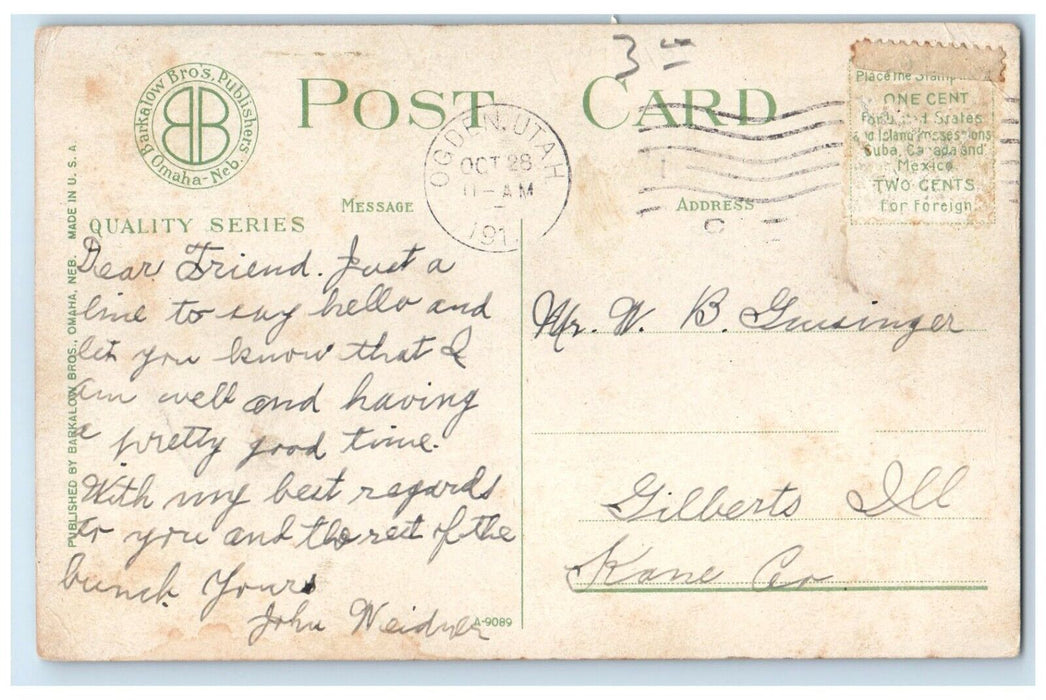 3 00
Barkalow Bro's. Publishers.
Omaha-Neb.
POST CARD
OGDEN, UTAH
OCT 28
11-AM
191
Place the Stamp
ONE CENT
For United States
and Island Possessions
Cuba, Canada and
Mexico
TWO CENTS
for Foreign
MESSAGE
ADDRESS
QUALITY SERIES
PUBLISHED BY BARKALOW BROS., OMAHA, NEB. MADE IN U.S.A.
Dear Friend. Just a
line to say hello and
let you know that I
am well and having
a pretty good time.
With my best regards
to you and the rest of the
bunch. Yours
John Weidner
A-9089
Mr. W. B. Geisinger
Gilberts Ill
Kane Co